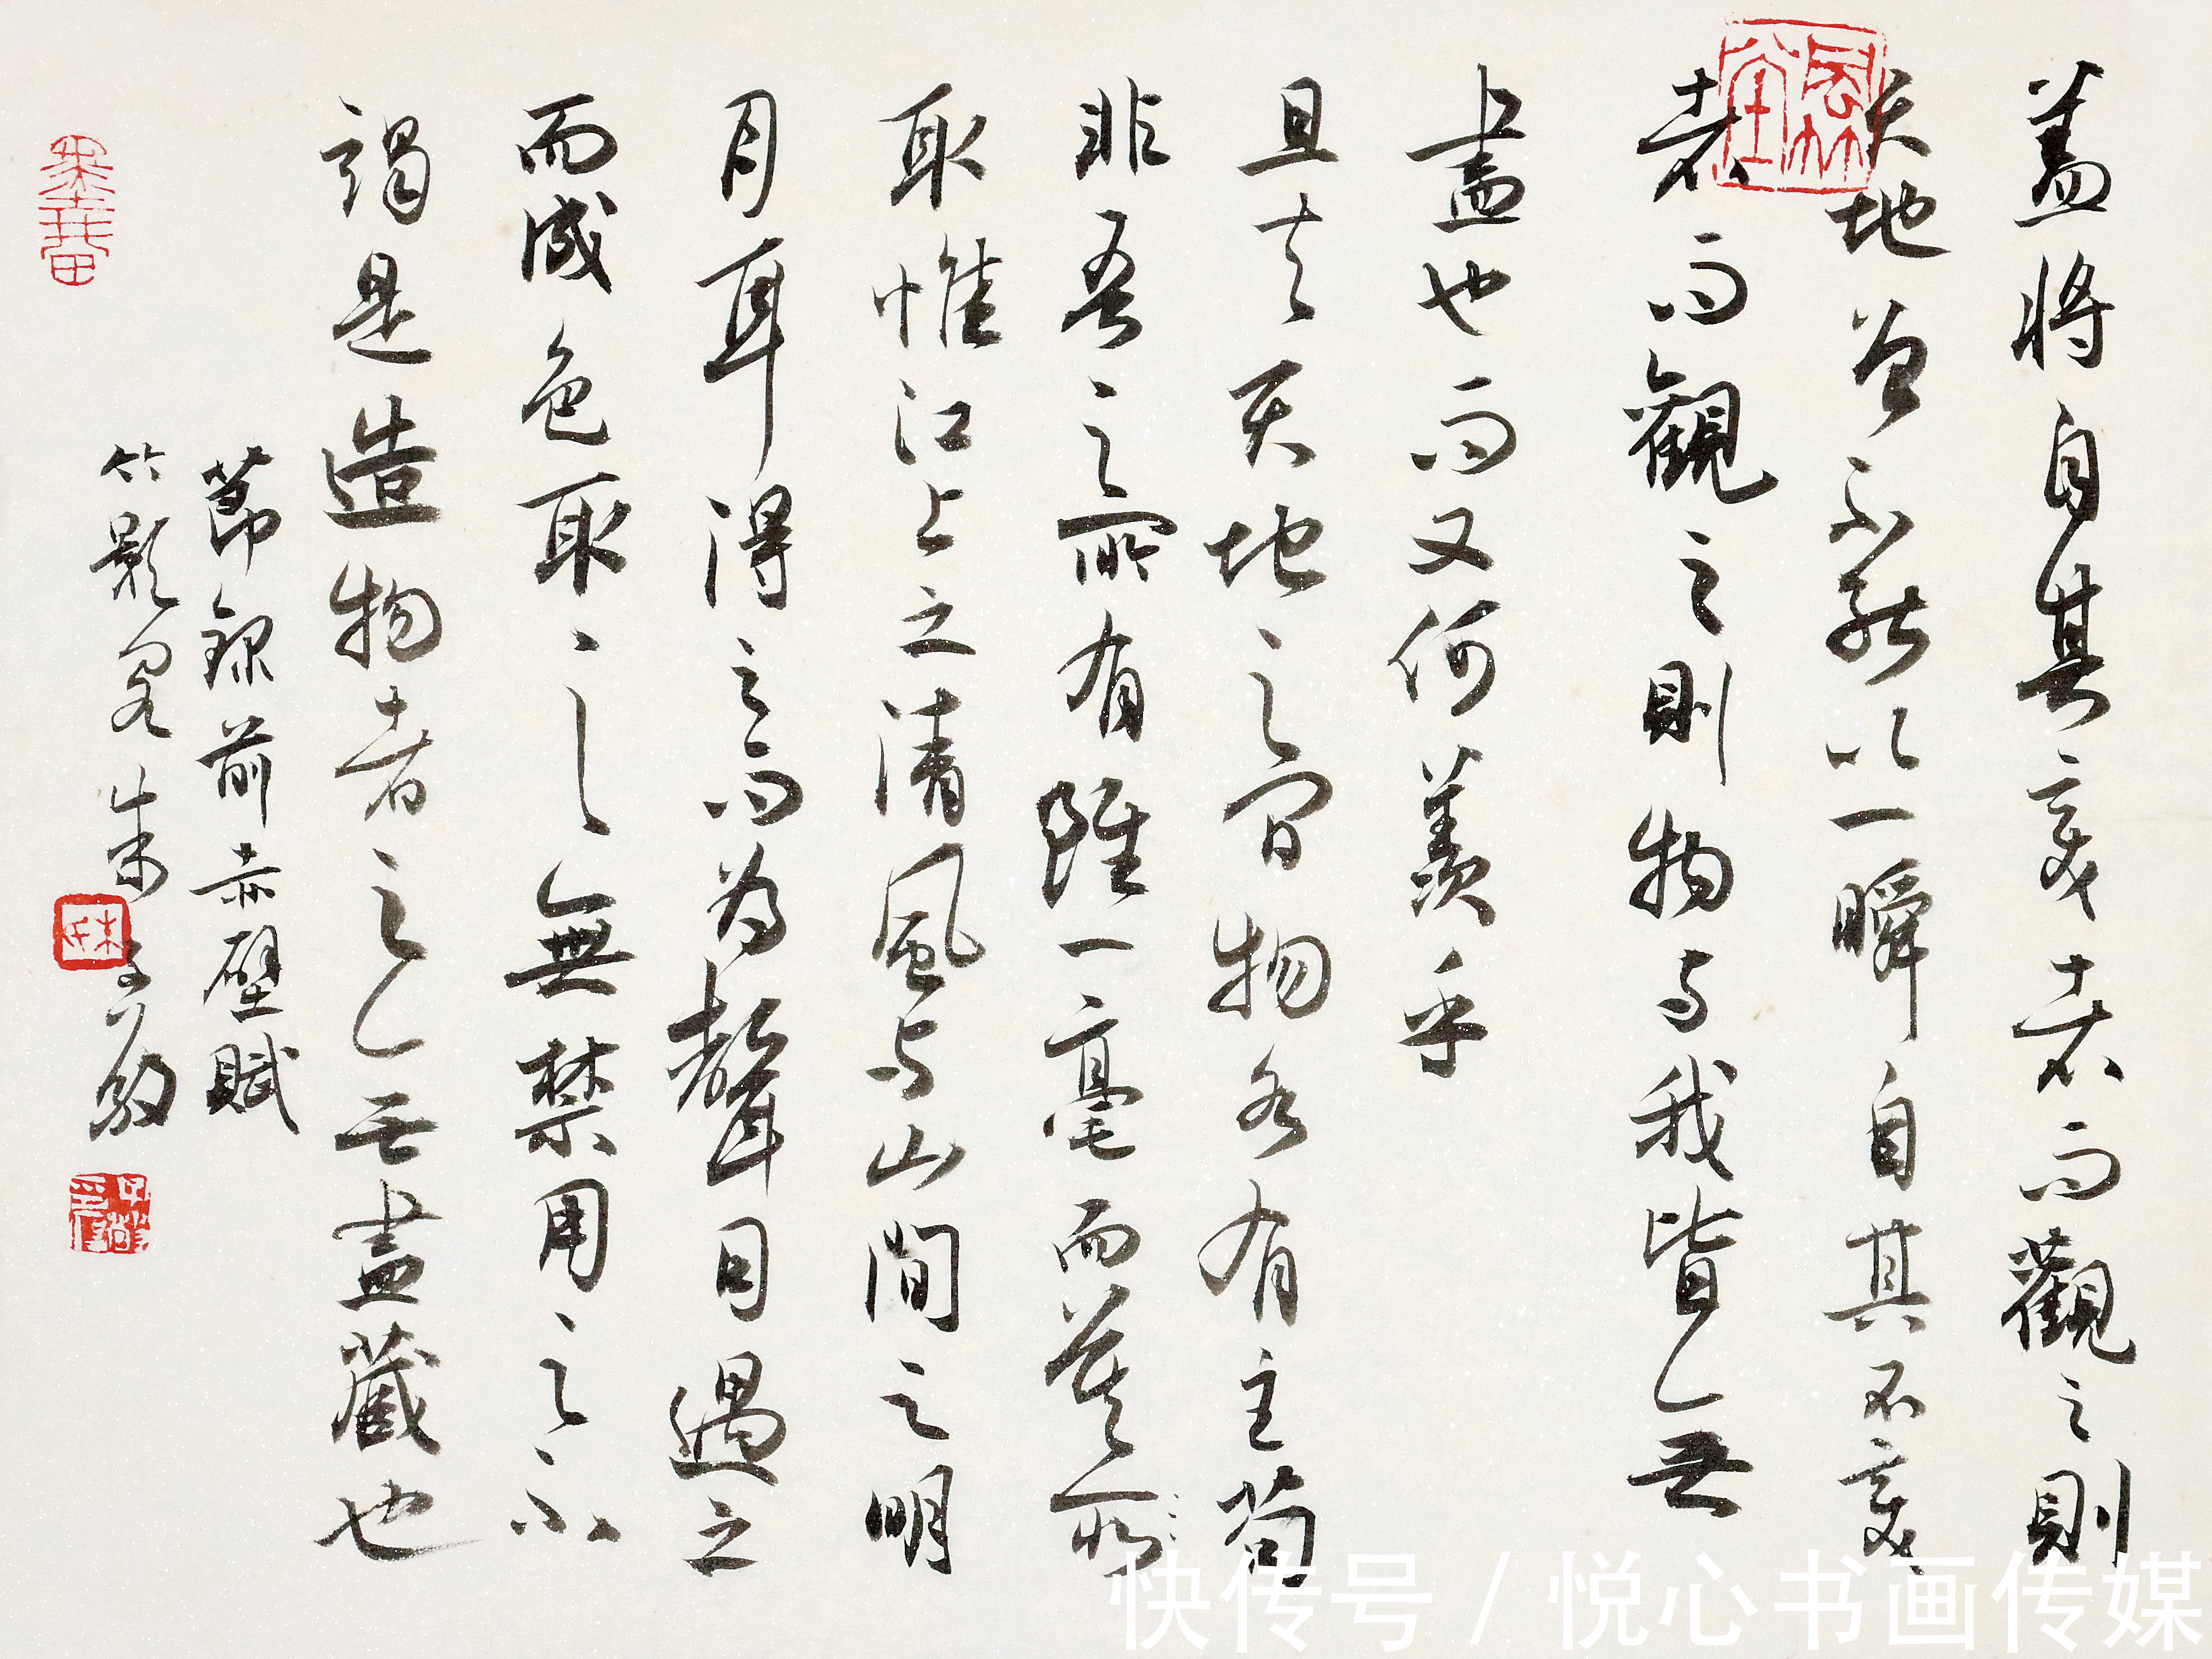 蓋將自其變者而觀之則
天地曾不能以一瞬自其不變
者而觀之則物与我皆无
盡也而又何羨乎
且夫天地之間物各有主苟
非吾之所有雖一毫而莫所
取惟江上之清風与山間之明
月耳得之而為聲目遇之
而成色取之無禁用之不
竭是造物者之无盡藏也
節錄前赤壁賦
竹影 朱
快传号 / 悦心书画传媒